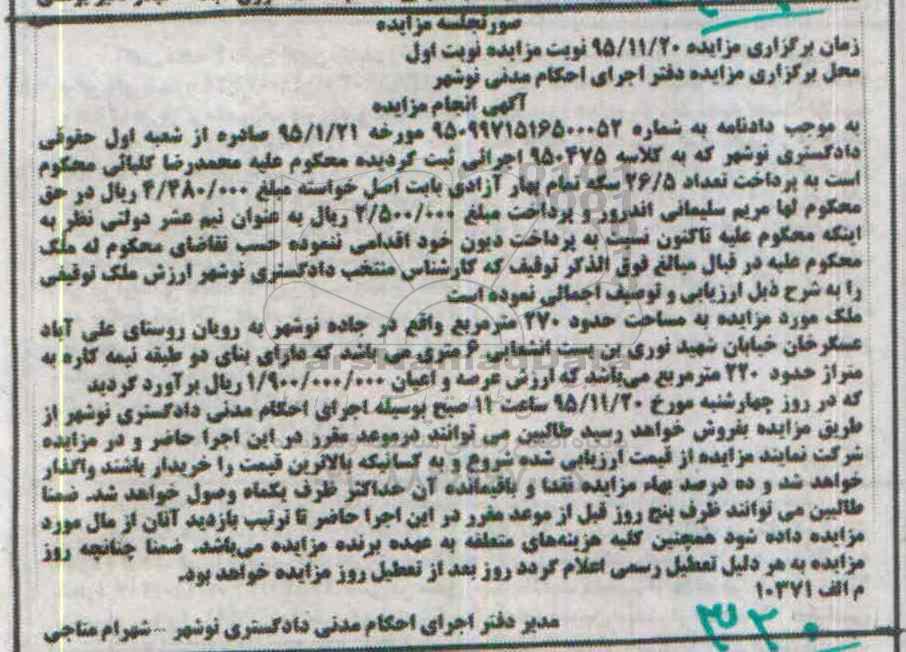 صورتجلسه مزایده
زمان برگزاری مزایده ۹۵/۱۱/۲۰ نوبت مزایده نوبت اول
محل برگزاری مزایده دفتر اجرای احکام مدنی نوشهر
آگهی انجام مزایده
به موجب دادنامه به شماره ۹۵۰۹۹۷۱۵۱۶۵۰۰۰۵۲ مورخه ۹۵/۱/۲۱ صادره از شعبه اول حقوقی
دادگستری نوشهر که به کلاسه ۹۵۰۴۷۵ اجرائی ثبت گردیده محکوم علیه محمدرضا گلبائی محکوم
است به پرداخت تعداد ۲۶/۵ سکه تمام بهار آزادی بابت اصل خواسته مبلغ ۴/۴۸۰/۰۰۰ ریال در حق
محکوم لها مریم سلیمانی اندرور و پرداخت مبلغ ۲/۵۰۰/۰۰۰ ریال به عنوان نیم عشر دولتی نظر به
اینکه محکوم علیه تاکنون نسبت به پرداخت دیون خود اقدامی ننموده حسب تقاضای محکوم له ملک
محکوم علیه در قبال مبالغ فوق الذکر توقیف که کارشناس منتخب دادگستری نوشهر ارزش ملک توقیفی
را به شرح ذیل ارزیابی و توصیف اجمالی نموده است
ملک مورد مزایده به مساحت حدود ۲۷۰ مترمربع واقع در جاده نوشهر به رویان روستای علی آباد
عسگرخان خیابان شهید نوری بن بست انشعابی ۶ متری می باشد که دارای بنای دو طبقه نیمه کاره به
متراژ حدود ۲۲۰ مترمربع می‌باشد که ارزش عرصه و اعیان ۱/۹۰۰/۰۰۰/۰۰۰ ریال برآورد گردید
که در روز چهارشنبه مورخ ۹۵/۱۱/۲۰ ساعت ۱۱ صبح بوسیله اجرای احکام مدنی دادگستری نوشهر از
طریق مزایده بفروش خواهد رسید طالبین می توانند درموعد مقرر در این اجرا حاضر و در مزایده
شرکت نمایند مزایده از قیمت ارزیابی شده شروع و به کسانیکه بالاترین قیمت را خریدار باشند واگذار
خواهد شد و ده درصد بهاء مزایده نقدا و باقیمانده آن حداکثر ظرف یکماه وصول خواهد شد. ضمنا
طالبین می توانند ظرف پنج روز قبل از موعد مقرر در این اجرا حاضر تا ترتیب بازدید آنان از مال مورد
مزایده داده شود همچنین کلیه هزینه‌های متعلقه به عهده برنده مزایده می‌باشد. ضمنا چنانچه روز
مزایده به هر دلیل تعطیل رسمی اعلام گردد روز بعد از تعطیل روز مزایده خواهد بود.
م الف ۱۰۳۷۱
مدیر دفتر اجرای احکام مدنی دادگستری نوشهر - شهرام متاجی